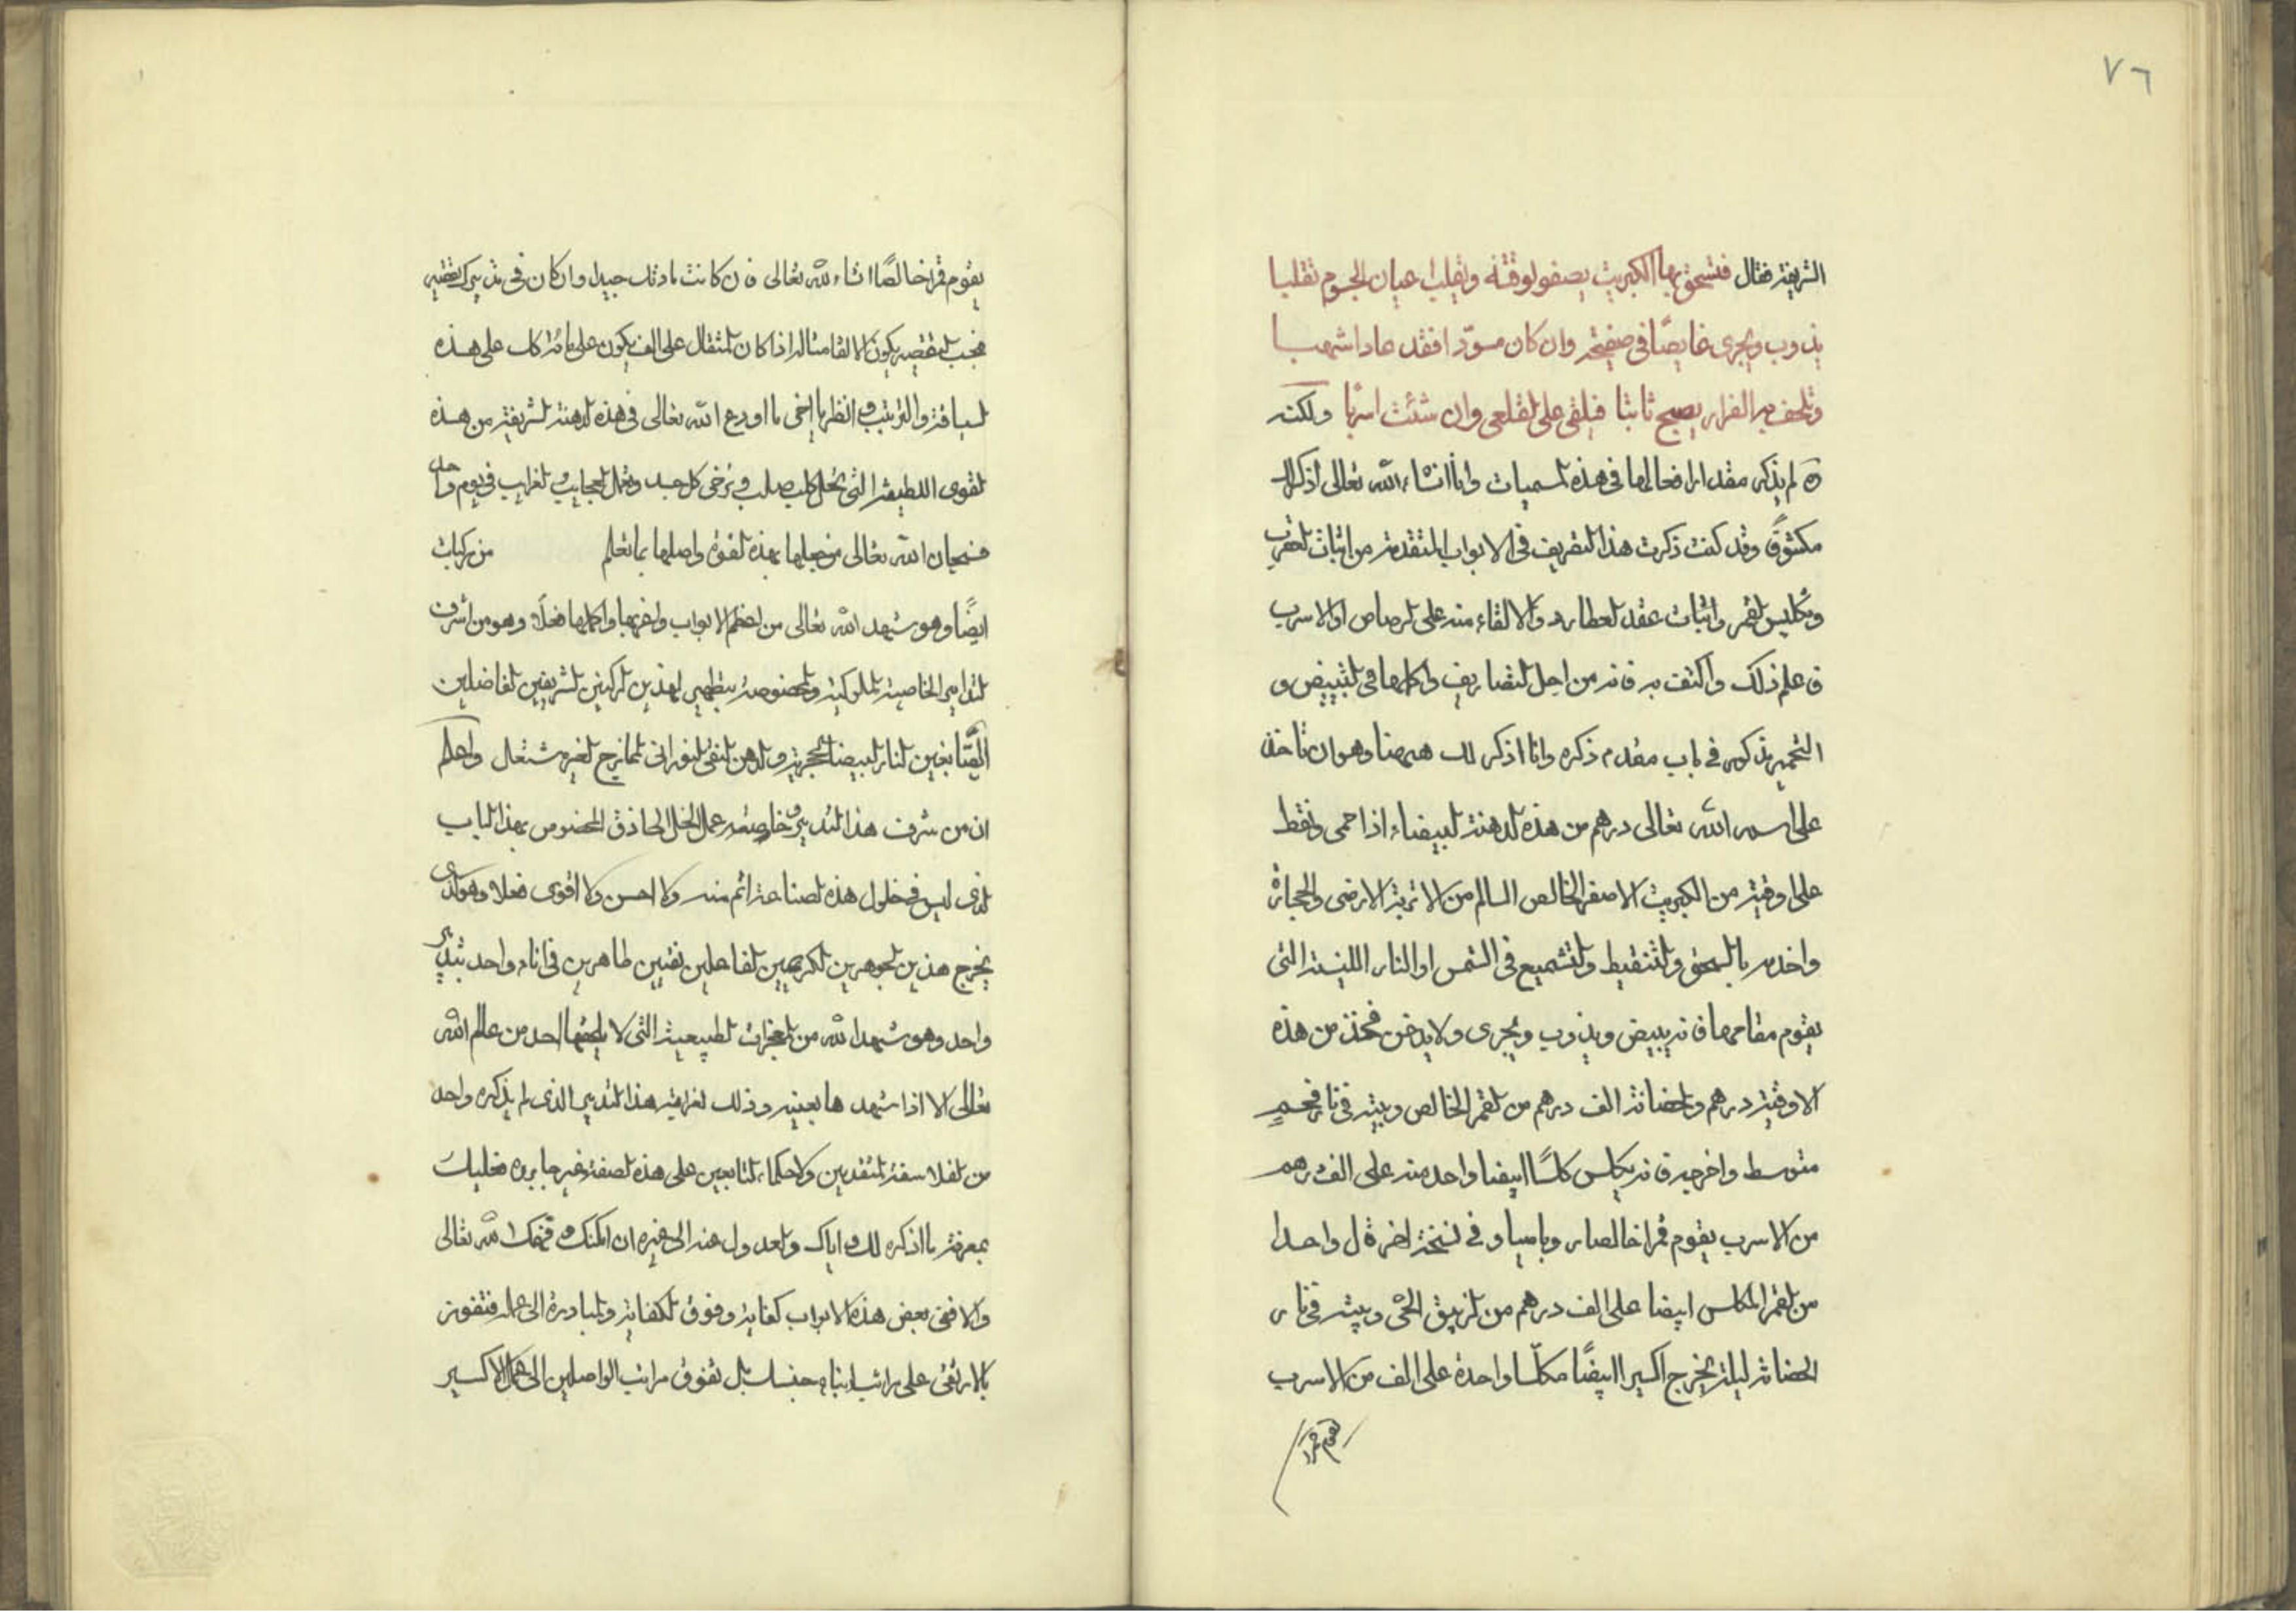 ٧٦
الشريفة فقال فتسحق بها الكبريت يصفو لوقته وتقلب اعيان الجسوم تقلبا
يذوب ويجرى غايصًا فى صفيحة وان كان مسودّا فقد عاد اشهبا
وتلحف به الفرار يصبح ثابتا فيلقى على القلعى وان شئت اسربا ولكنه
لم يذكر مقدار افعالها فى هذه المسميات وانا انشاء الله تعالى اذكر لك
مكشوفًا وقد كنت ذكرت هذا التصريف فى الابواب المتقدمة من اثبات العقرب
وتكليس القمر واثبات عقد العطارد والالقاء منه على الرصاص او الاسرب
فاعلم ذلك واكتف به فانه من اجل التصاريف واكملها فى التبييض و
التحمير يذكر فى باب مقدم ذكره وانا اذكر لك ههنا وهو ان تاخذ
على اسم الله تعالى درهم من هذه الدهنة البيضاء اذا حمى ونقط
على اوقية من الكبريت الاصفر الخالص السالم من الاتربة الارضى والحجارة
واخدمه بالسحق والتنقيط والتشميع فى الشمس او النار اللينة التى
يقوم مقامها فانه يبيض ويذوب ويجرى ولا يدخن فخذ من هذه
الاوقية درهم والحضانة الف درهم من القمر الخالص وبيته فى نار فحم
متوسط واخرجه فانه يكلس كلسًا ابيضا واحد منه على الف درهم
من الاسرب يقوم قمرا خالصا روباصيا و فى نسخة اخرة ل واحدا
من القمر المكلس ابيضا على الف درهم من الزيبق الحى وبيته فى نار
الحضانة ليلة يخرج اكسيرا ابيضًا مكلّسا واحدة على الف من الاسرب
يقوم قمرا
يقوم قمرا خالصًا انشاء الله تعالى فان كانت مادتك جيدا وان كان فى تدبيرك تقصير
فبحسب التقصير يكون الالقا مثاله اذا كان المثقال على الف يكون على مائة كان على هذه
السياقة والترتيب وانظر يا اخى ما اودع الله تعالى فى هذه الدهنة الشريفة من هذه
القوى اللطيفة التى تحل كل صلب وترخى كل جسد وتعمل العجايب والغرايب فى يوم واحد
فسبحان الله تعالى من جعلها بهذه القوة واصلها بما تعلم من بركات
ايضًا وهو شهد الله تعالى من اعظم الابواب واغربها واكملها فعلًا وهو من اشرف
التدابير الخاصية الملوكية والمخصوصة بتطهير لهذين الركنين الشريفين الفاضلين
الصّابغين النار البيضا الحجرية والدهن النقى النورانى الممازج الغير مشتعل واعلم
ان من شرف هذا التدبير وخاصيته عمل الخل الحاذق المخصوص بهذا الباب
الذى ليس فى خلول هذه الصناعة اتم منه ولا احسن ولا اقوى فعلا وهو الذى
يخرج هذين الجوهرين الكريمين الفاعلين نقيين طاهرين فى اناء واحد بتدبير
واحد وهو شهد الله من المعجزات الطبيعية التى لا يلحقها احد من عالم الله
تعالى الا اذا شهدها بعينه وذلك لغرابة هذا التدبير الذى لم يذكره واحد
من الفلاسفة المتقدمين والحكماء التابعين على هذه الصفة غير جابر ره فعليك
بمعرفة ما اذكره لك واياك والعدول عنه الى غيره ان امكنك وفهمك الله تعالى
والا ففى بعض هذه الابواب كفاية وفوق الكفاية والمبادرة الى عمله فتفوز
بالارتقى على مراتب ابناء جنسك بل تفوق مراتب الواصلين الى عمل الاكسير